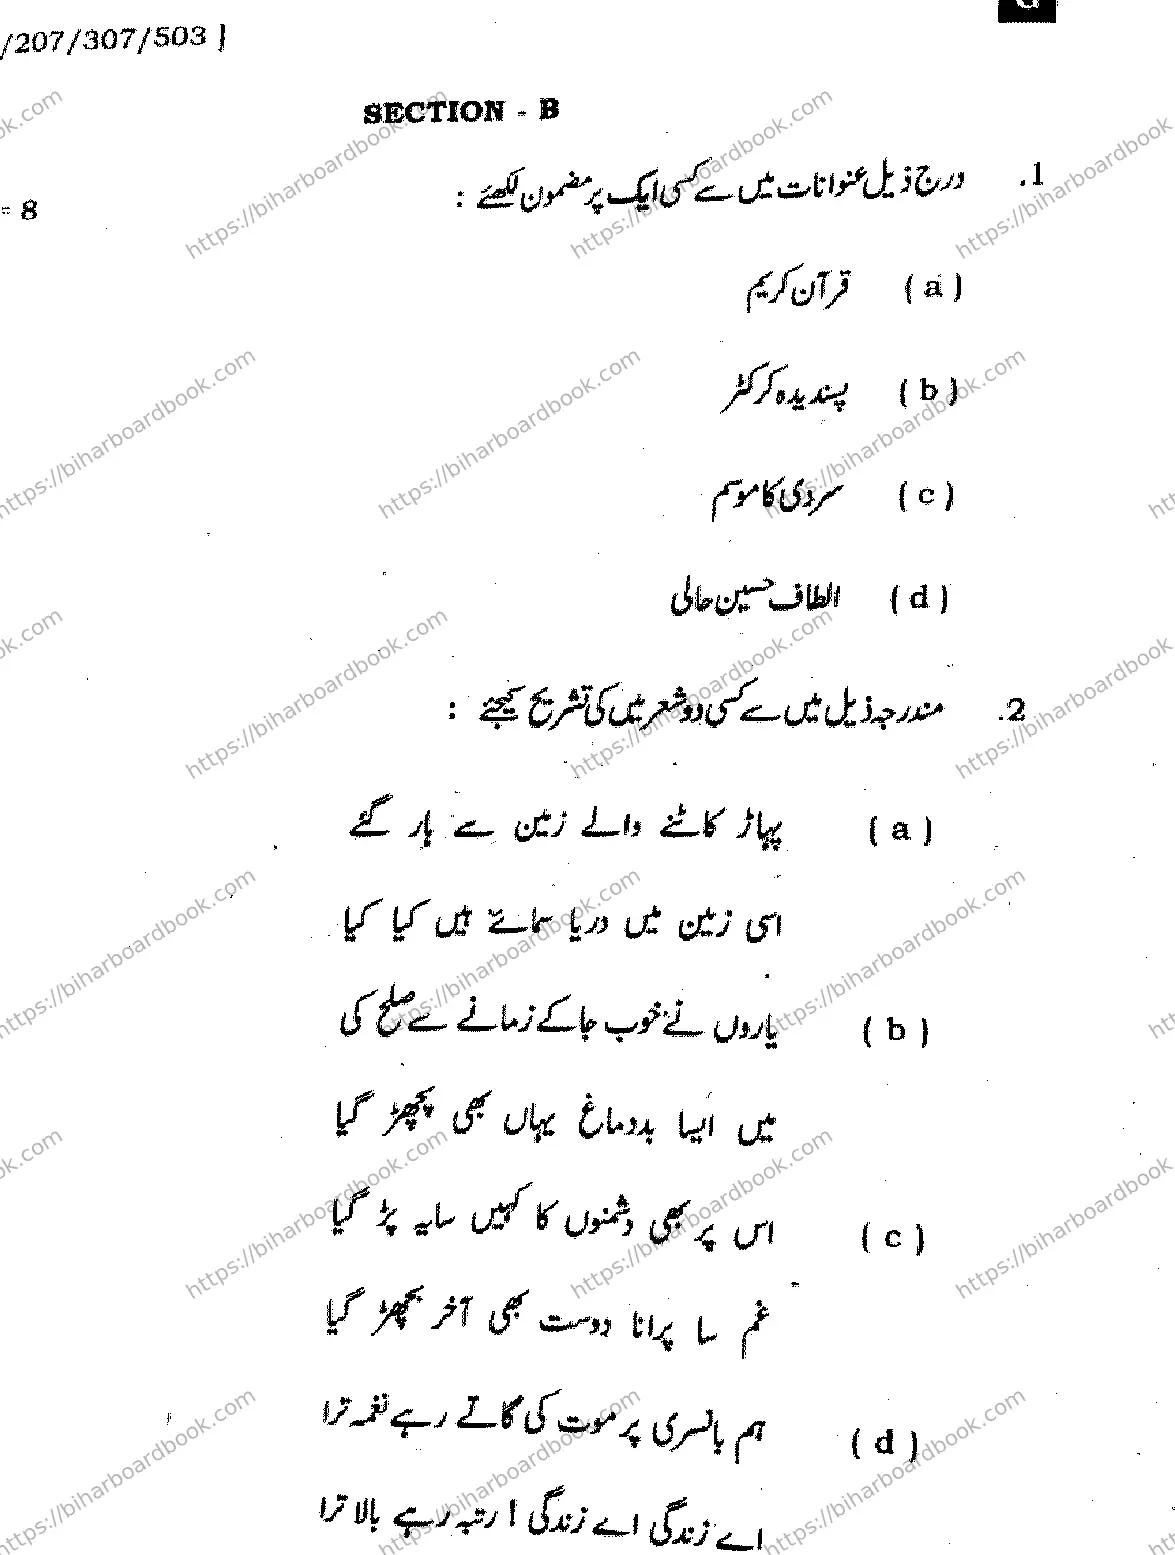 /207/307/503 ]
SECTION - B
1. درج ذیل عنوانات میں سے کسی ایک پر مضمون لکھئے :
= 8
( a ) قرآن کریم
( b ) پسندیدہ کرکٹر
( c ) سردی کا موسم
( d ) الطاف حسین حالی
2. مندرجہ ذیل میں سے کسی دو شعر میں کی تشریح کیجئے :
( a ) پہاڑ کاٹنے والے زمین سے ہار گئے
اسی زمین میں دریا سمائے ہیں کیا کیا
( b ) یاروں نے خوب جا کے زمانے سے صلح کی
میں ایسا بددماغ یہاں بھی پچھڑ گیا
( c ) اس پر بھی دشمنوں کا کہیں سایہ پڑ گیا
غم سا پرانا دوست بھی آخر بچھڑ گیا
( d ) ہم بانسری پر موت کی گاتے رہے نغمہ ترا
اے زندگی اے زندگی ! رتبہ رہے بالا ترا
https://biharboardbook.com